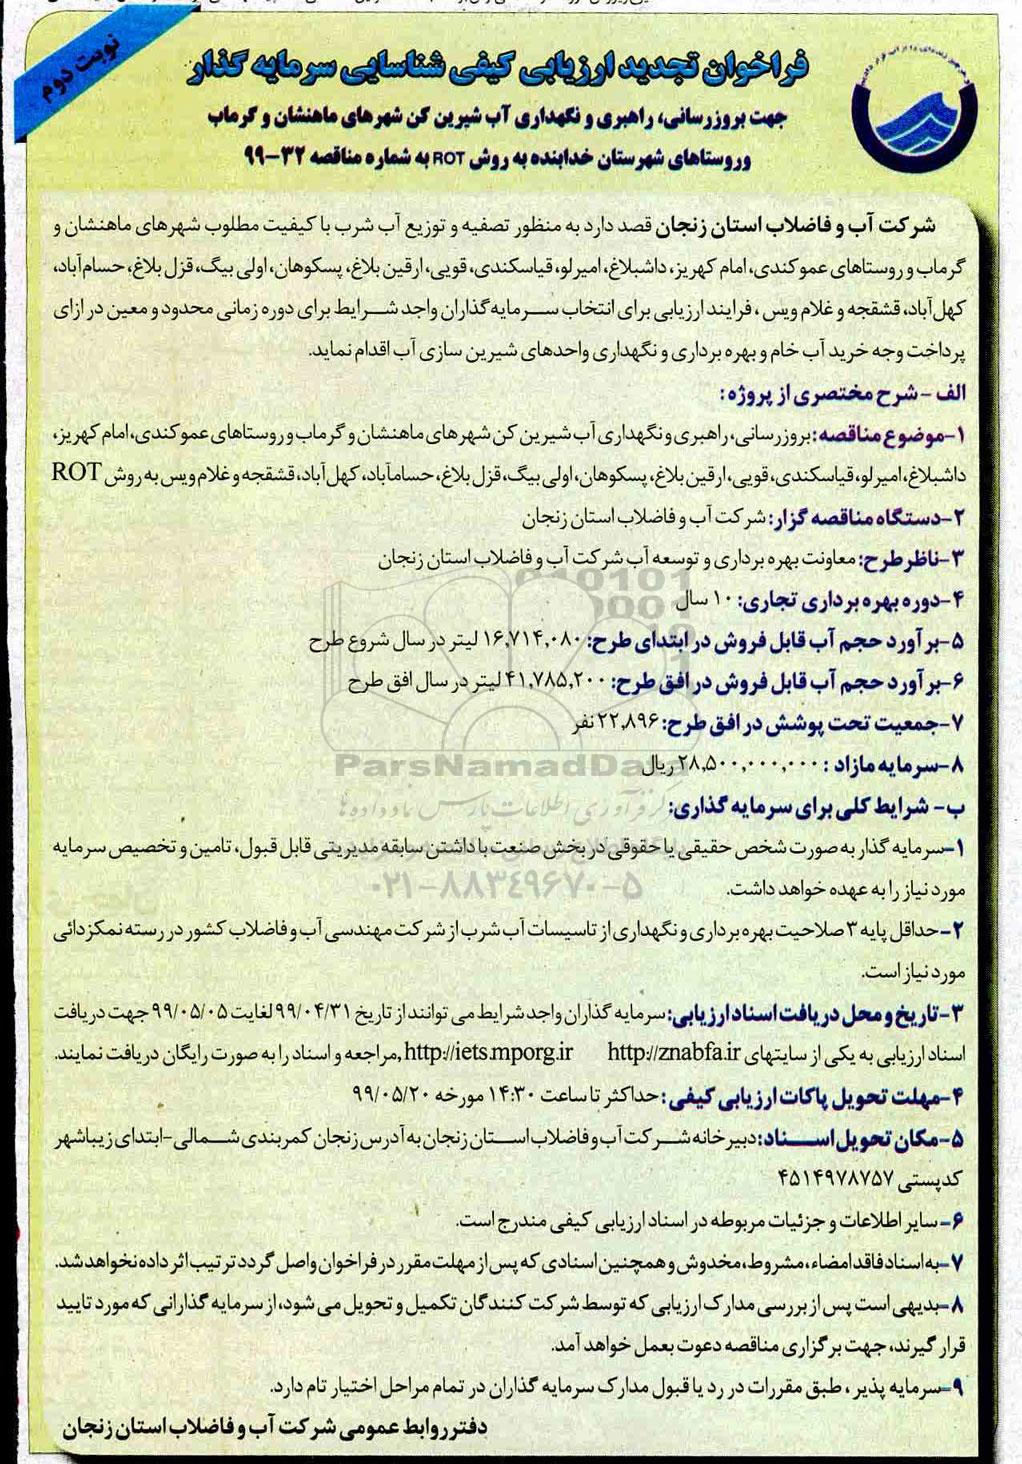 نوبت دوم
فراخوان تجدید ارزیابی کیفی شناسایی سرمایه گذار
جهت بروزرسانی، راهبری و نگهداری آب شیرین کن شهرهای ماهنشان و گرماب
وروستاهای شهرستان خدابنده به روش ROT به شماره مناقصه ۳۲-۹۹
شرکت آب و فاضلاب استان زنجان قصد دارد به منظور تصفیه و توزیع آب شرب با کیفیت مطلوب شهرهای ماهنشان و
گرماب و روستاهای عموکندی، امام کهریز، داشبلاغ، امیرلو، قیاسکندی، قویی، ارقین بلاغ، پسکوهان، اولی بیگ، قزل بلاغ، حسام‌آباد،
کهل‌آباد، قشقجه و غلام ویس ، فرایند ارزیابی برای انتخاب سرمایه‌گذاران واجد شرایط برای دوره زمانی محدود و معین در ازای
پرداخت وجه خرید آب خام و بهره برداری و نگهداری واحدهای شیرین سازی آب اقدام نماید.
الف - شرح مختصری از پروژه :
۱-موضوع مناقصه: بروزرسانی، راهبری و نگهداری آب شیرین کن شهرهای ماهنشان و گرماب و روستاهای عموکندی، امام کهریز،
داشبلاغ، امیرلو، قیاسکندی، قویی، ارقین بلاغ، پسکوهان، اولی بیگ، قزل بلاغ، حسام‌آباد، کهل آباد، قشقجه و غلام ویس به روش ROT
۲-دستگاه مناقصه گزار: شرکت آب و فاضلاب استان زنجان
۳-ناظر طرح: معاونت بهره برداری و توسعه آب شرکت آب و فاضلاب استان زنجان
۴-دوره بهره برداری تجاری: ۱۰ سال
۵-برآورد حجم آب قابل فروش در ابتدای طرح: ۱۶,۷۱۴,۰۸۰ لیتر در سال شروع طرح
۶-برآورد حجم آب قابل فروش در افق طرح: ۴۱,۷۸۵,۲۰۰ لیتر در سال افق طرح
۷-جمعیت تحت پوشش در افق طرح: ۲۲,۸۹۶ نفر
۸-سرمایه مازاد : ۲۸,۵۰۰,۰۰۰,۰۰۰ ریال
ParsNamadData
ب- شرایط کلی برای سرمایه گذاری:
گرفرآوری اطلاعات پارس نماد داده ها
۱-سرمایه گذار به صورت شخص حقیقی یا حقوقی در بخش صنعت با داشتن سابقه مدیریتی قابل قبول، تامین و تخصیص سرمایه
مورد نیاز را به عهده خواهد داشت.
۰۲۱-۸۸۳۴۹۶۷۰-۵
۲-حداقل پایه ۳ صلاحیت بهره برداری و نگهداری از تاسیسات آب شرب از شرکت مهندسی آب و فاضلاب کشور در رسته نمکزدائی
مورد نیاز است.
۳-تاریخ و محل دریافت اسناد ارزیابی: سرمایه گذاران واجد شرایط می توانند از تاریخ ۹۹/۰۴/۳۱ لغایت ۹۹/۰۵/۰۵ جهت دریافت
اسناد ارزیابی به یکی از سایتهای http://znabfa.ir http://iets.mporg.ir ,مراجعه و اسناد را به صورت رایگان دریافت نمایند.
۴-مهلت تحویل پاکات ارزیابی کیفی : حداکثر تا ساعت ۱۴:۳۰ مورخه ۹۹/۰۵/۲۰
۵-مکان تحویل اسناد: دبیرخانه شرکت آب و فاضلاب استان زنجان به آدرس زنجان کمربندی شمالی-ابتدای زیباشهر
کدپستی ۴۵۱۴۹۷۸۷۵۷
۶-سایر اطلاعات و جزئیات مربوطه در اسناد ارزیابی کیفی مندرج است.
۷-به اسناد فاقد امضاء، مشروط، مخدوش و همچنین اسنادی که پس از مهلت مقرر در فراخوان واصل گردد ترتیب اثر داده نخواهد شد.
۸-بدیهی است پس از بررسی مدارک ارزیابی که توسط شرکت کنندگان تکمیل و تحویل می شود، از سرمایه گذارانی که مورد تایید
قرار گیرند، جهت برگزاری مناقصه دعوت بعمل خواهد آمد.
۹-سرمایه پذیر ، طبق مقررات در رد یا قبول مدارک سرمایه گذاران در تمام مراحل اختیار تام دارد.
دفتر روابط عمومی شرکت آب و فاضلاب استان زنجان